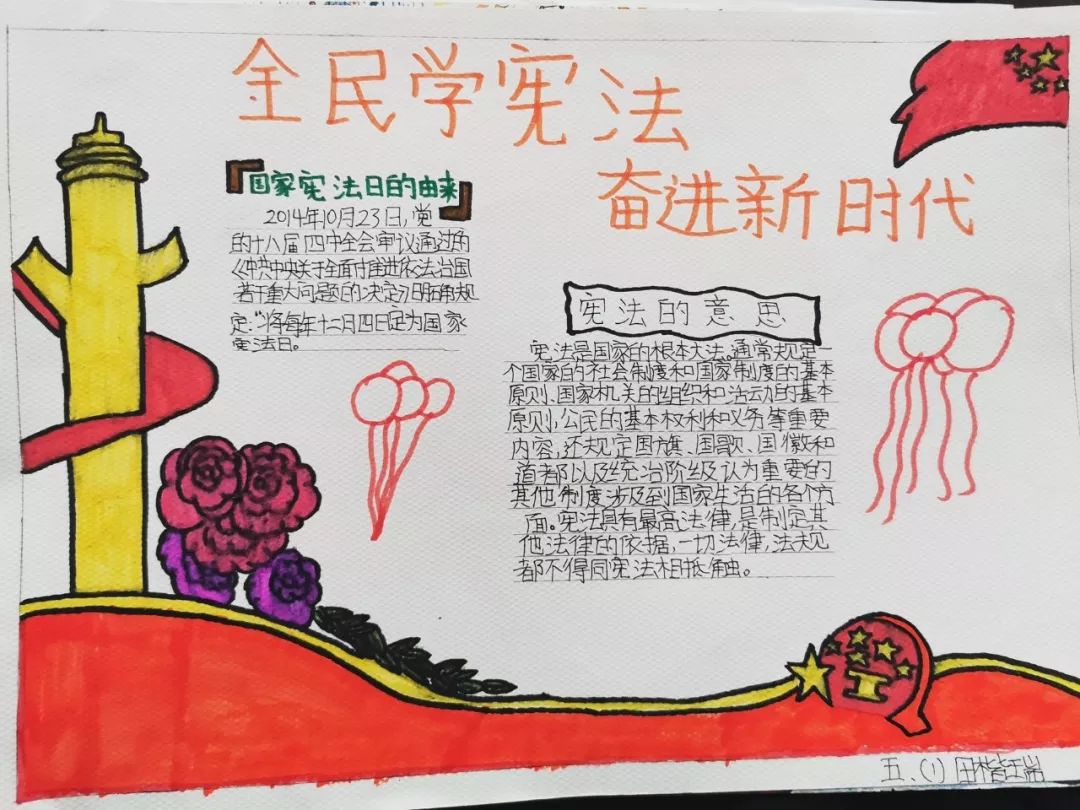 全民学宪法
奋进新时代
国家宪法日的由来
2014年10月23日,党
的十八届四中全会审议通过的
《中共中央关于全面推进依法治国
若干重大问题的决定》明确规
定:“将每年十二月四日定为国家
宪法日。
宪法的意思
宪法是国家的根本大法。通常规定一
个国家的社会制度和国家制度的基本
原则、国家机关的组织和活动的基本
原则,公民的基本权利和义务等重要
内容,还规定国旗、国歌、国徽和
首都以及统治阶级认为重要的
其他制度涉及到国家生活的各个方
面。宪法具有最高法律,是制定其
他法律的依据,一切法律,法规
都不得同宪法相抵触。
五.(1)